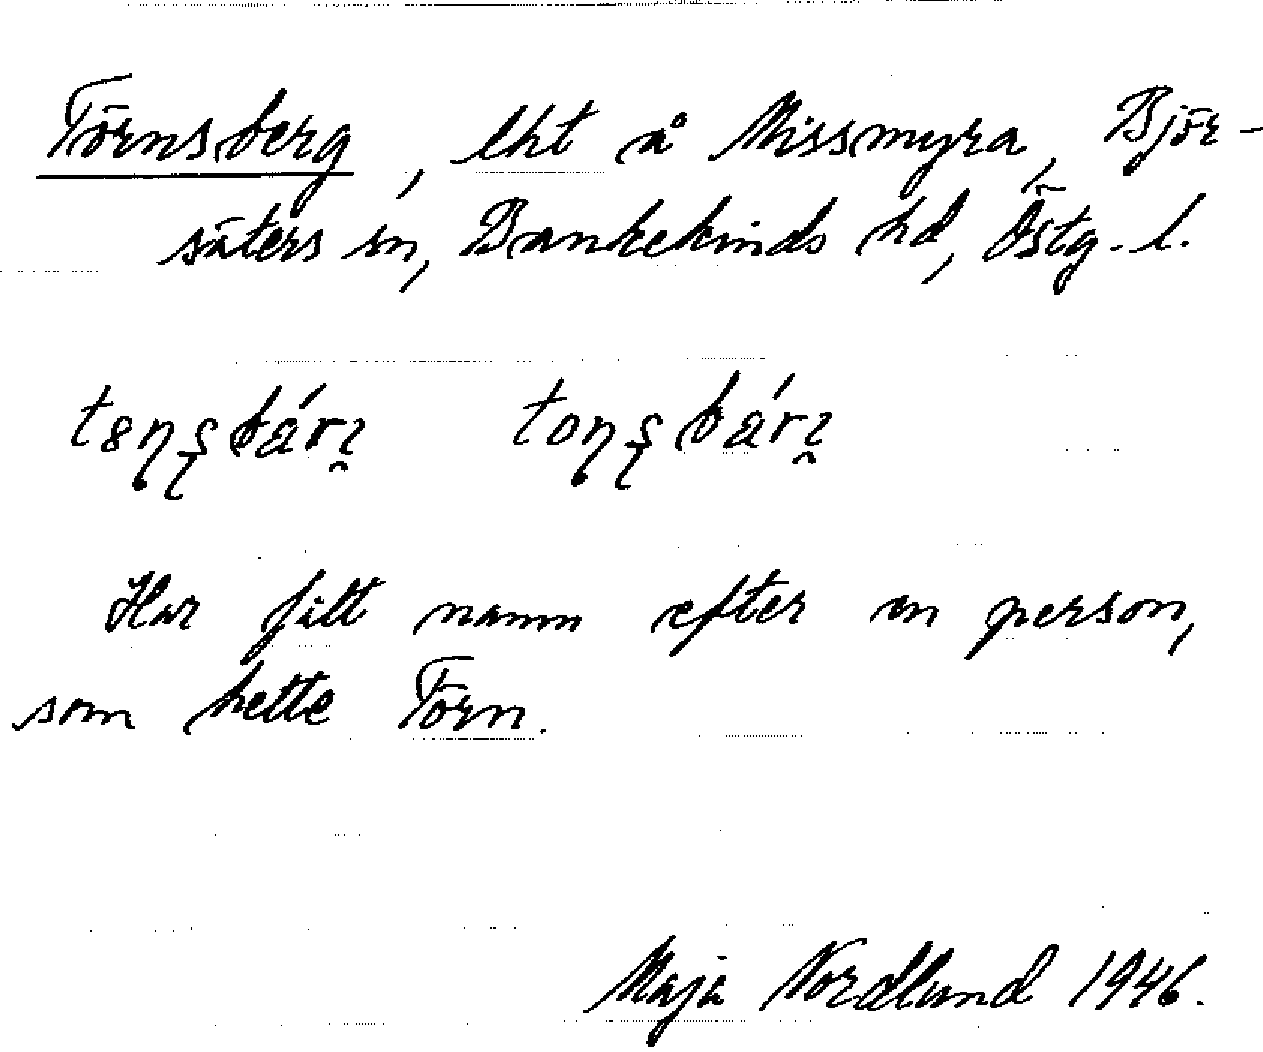 Törnsberg, lht å Missmyra, Björ-
säters sn, Bankekinds hd, Östg. l.
Har fått namn efter en person,
som hette Törn.
Maja Nordlund 1946.